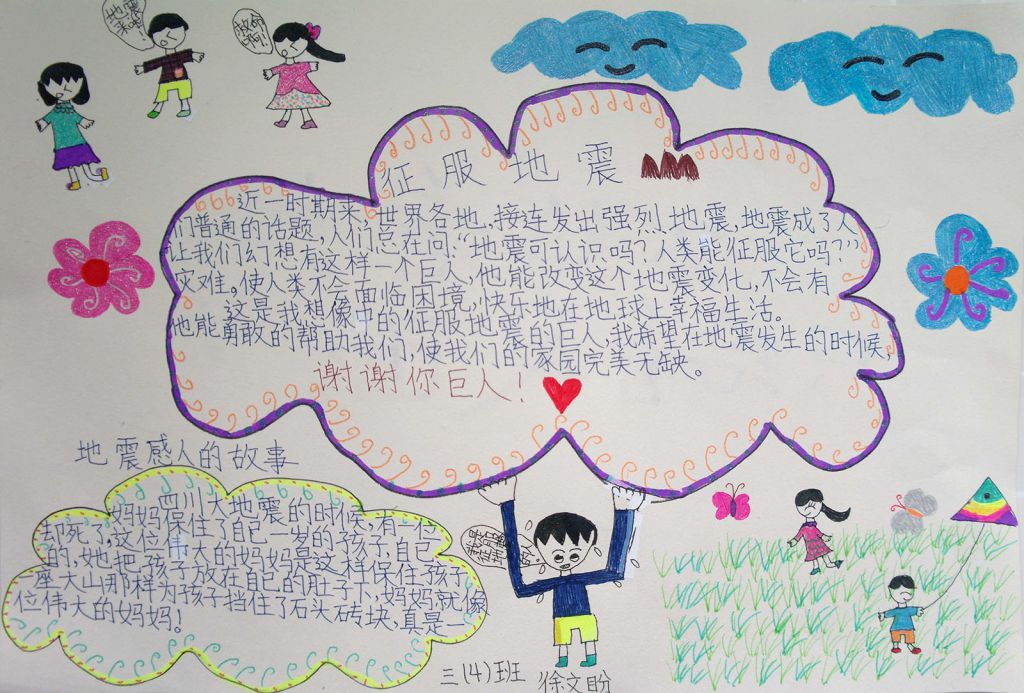 地震
来啦!
救命
啊!
征服地震
近一时期来,世界各地,接连发出强烈地震,地震成了人
们普通的话题,人们总在问:“地震可认识吗?人类能征服它吗?”
让我们幻想有这样一个巨人,他能改变这个地震变化,不会有
灾难。使人类不会面临困境,快乐地在地球上幸福生活。
这是我想像中的征服地震的巨人,我希望在地震发生的时候,
他能勇敢的帮助我们,使我们的家园完美无缺。
谢谢你巨人!
地震感人的故事
四川大地震的时候,有一位
妈妈保住了自己一岁的孩子,自己
却死了,这位伟大的妈妈是这样保住孩子
的,她把孩子放在自已的肚子下,妈妈就像
一座大山那样为孩子挡住了石头砖块,真是一
位伟大的妈妈!
三(4)班 徐文盼